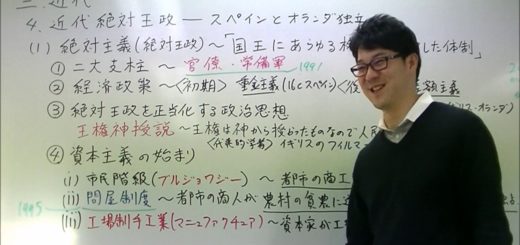 三. 近代
4. 近代絶対王政 ― スペインとオランダ独立
(1) 絶対主義(絶対王政)～「国王にあらゆる した体制」
① 二大支柱～官僚・常備軍
1991
② 経済政策～〈初期〉重金主義(16cスペイン)〈後 差額主義
イギリス・オランダ)
③ 絶対王政を正当化する政治思想
王権神授説～王権は神から授かったものなので人民
〈代表的学者〉イギリスのフィルマー
④ 資本主義の始まり
(i) 市民階級(ブルジョワジー)～都市の商工
(ii) 問屋制度～都市の商人が農村の貧農に
1995
(iii) 工場制手工業(マニュファクチュア)～資本家が工